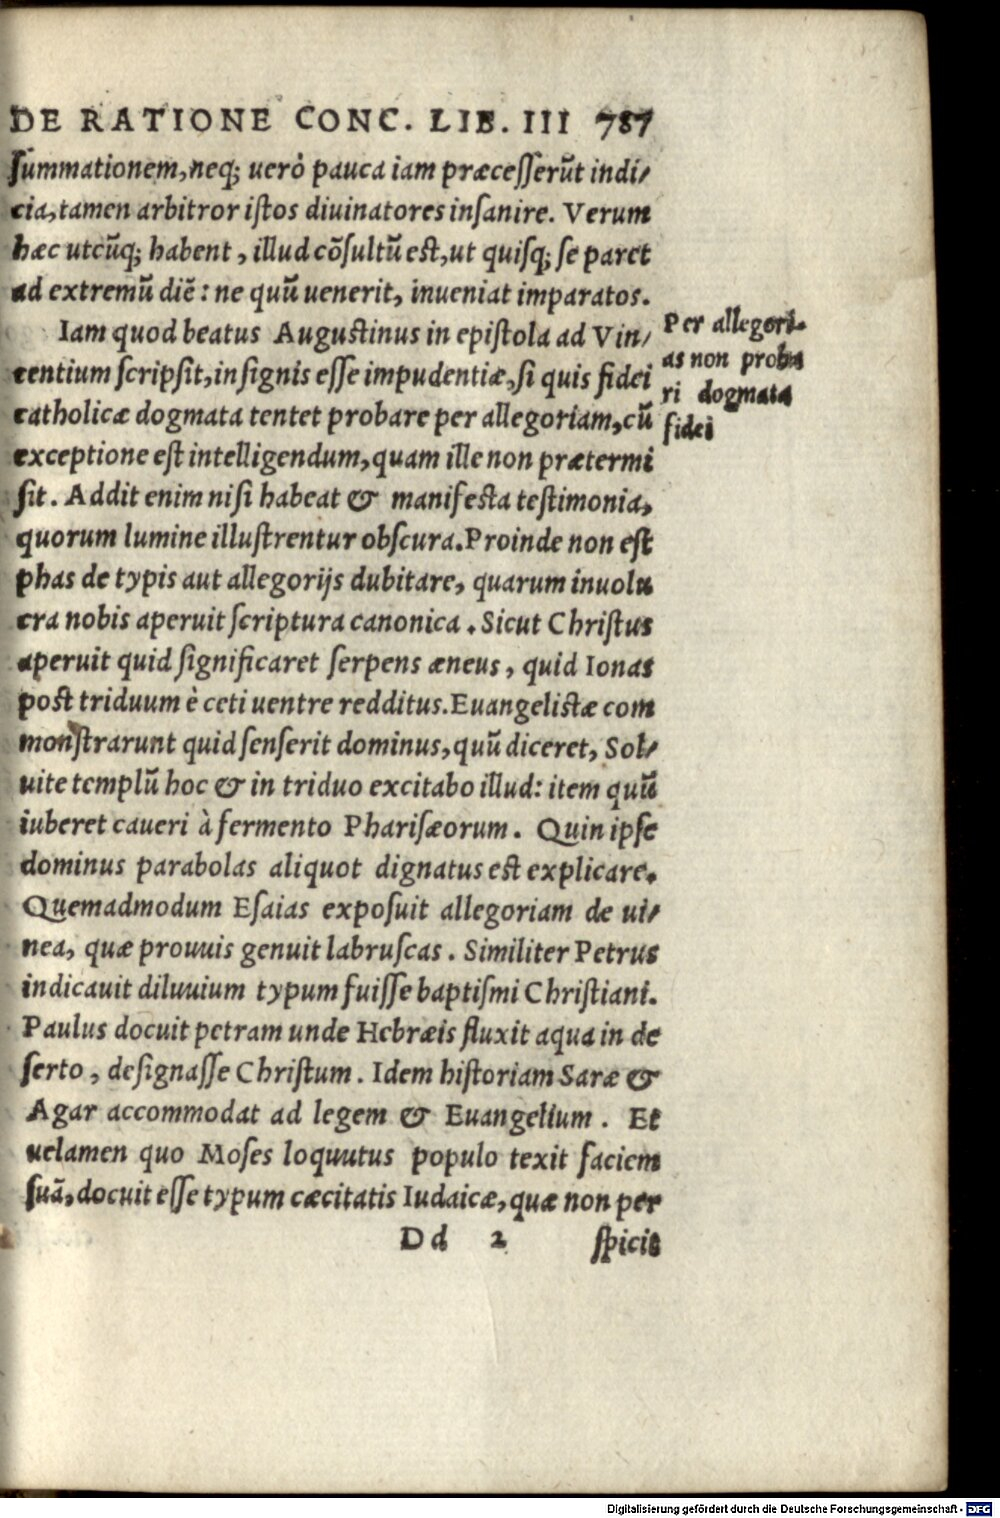 DE RATIONE CONC. LIB. III 787
ſummationem, neq; uerò pauca iam præceſſerũt indi/
cia, tamen arbitror iſtos diuinatores inſanire. Verum
hæc utcũq; habent, illud cõſultũ eſt, ut quiſq; ſe paret
ad extremũ diẽ: ne quũ uenerit, inueniat imparatos.
Iam quod beatus Auguſtinus in epiſtola ad Vin/
centium ſcripſit, inſignis eſſe impudentiæ, ſi quis fidei
catholicæ dogmata tentet probare per allegoriam, cũ
exceptione eſt intelligendum, quam ille non prætermi
ſit. Addit enim niſi habeat & manifeſta teſtimonia,
quorum lumine illuſtrentur obſcura. Proinde non eſt
phas de typis aut allegorijs dubitare, quarum inuolu
cra nobis aperuit ſcriptura canonica. Sicut Chriſtus
aperuit quid ſignificaret ſerpens æneus, quid Ionas
poſt triduum è ceti uentre redditus. Euangeliſtæ com
monſtrarunt quid ſenſerit dominus, quũ diceret, Sol/
uite templũ hoc & in triduo excitabo illud: item quũ
iuberet caueri à fermento Phariſæorum. Quin ipſe
dominus parabolas aliquot dignatus eſt explicare.
Quemadmodum Eſaias expoſuit allegoriam de ui/
nea, quæ prouuis genuit labruſcas. Similiter Petrus
indicauit diluuium typum fuiſſe baptiſmi Chriſtiani.
Paulus docuit petram unde Hebræis fluxit aqua in de
ſerto, deſignaſſe Chriſtum. Idem hiſtoriam Saræ &
Agar accommodat ad legem & Euangelium. Et
uelamen quo Moſes loquutus populo texit faciem
ſuã, docuit eſſe typum cæcitatis Iudaicæ, quæ non per
Dd 2 ſpicit
Per allegori-
as non proba
ri dogmata
fidei
Digitalisierung gefördert durch die Deutsche Forschungsgemeinschaft - DFG